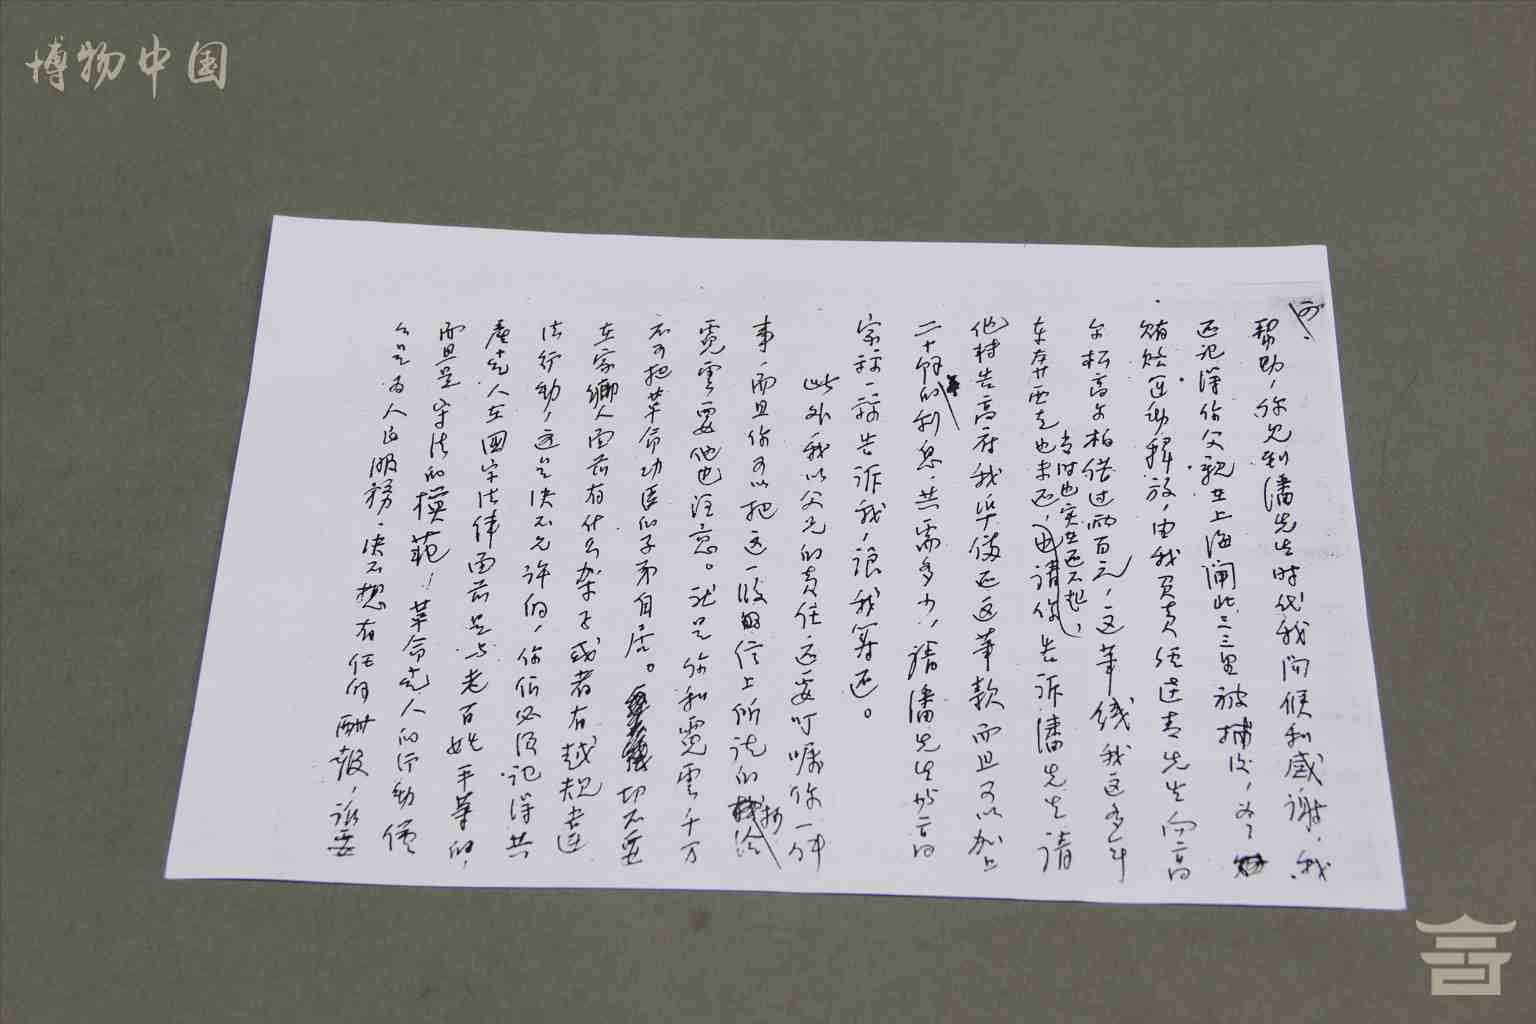 博物中国
帮助，你见到潘先生时代我问候和感谢，我
还记得你父亲在上海闸北三三里被捕后，为了
赎贿运动释放，由我负责经过青先生向高
尔松高尔柏借过两百元，这笔钱我这多年
东奔西走也未还，当时也实在还不起，请你告诉潘先生请
他转告高府我准备还这笔款而且可以加上
二十年的利息，共需多少，请潘先生与高
家谈一谈告诉我，让我筹还。
此外我以父兄的责任还要叮嘱你一件
事，而且你可以把这一段信上所说的抄给
霓云要他也注意。就是你和霓云千万
不可把革命功臣的子弟自居。切不要
在家乡人面前有什么架子或者有越规违
法行动，这是决不允许的，你们必须记得共
产党人在国家法律面前是与老百姓平等的，
而且是守法的模范！革命党人的行动仅
仅是为人民服务，决不想有任何酬报，谁要